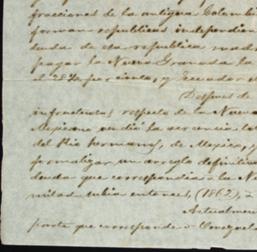 fracciones de la antigua Colombi
forman republicas independien
deuda de esta republica
pagar la Nueva Granada la
el 28½ por ciento, y Ecuador
Despues de
respecto de la Nueva
Mexicano
del Rio hermano, de Mexico, y
formalizar un arreglo definitiv
deuda que correspondia a la N
mitad subia entonces, (1862), a
Actualmen
parte que corresponde a Venezuela